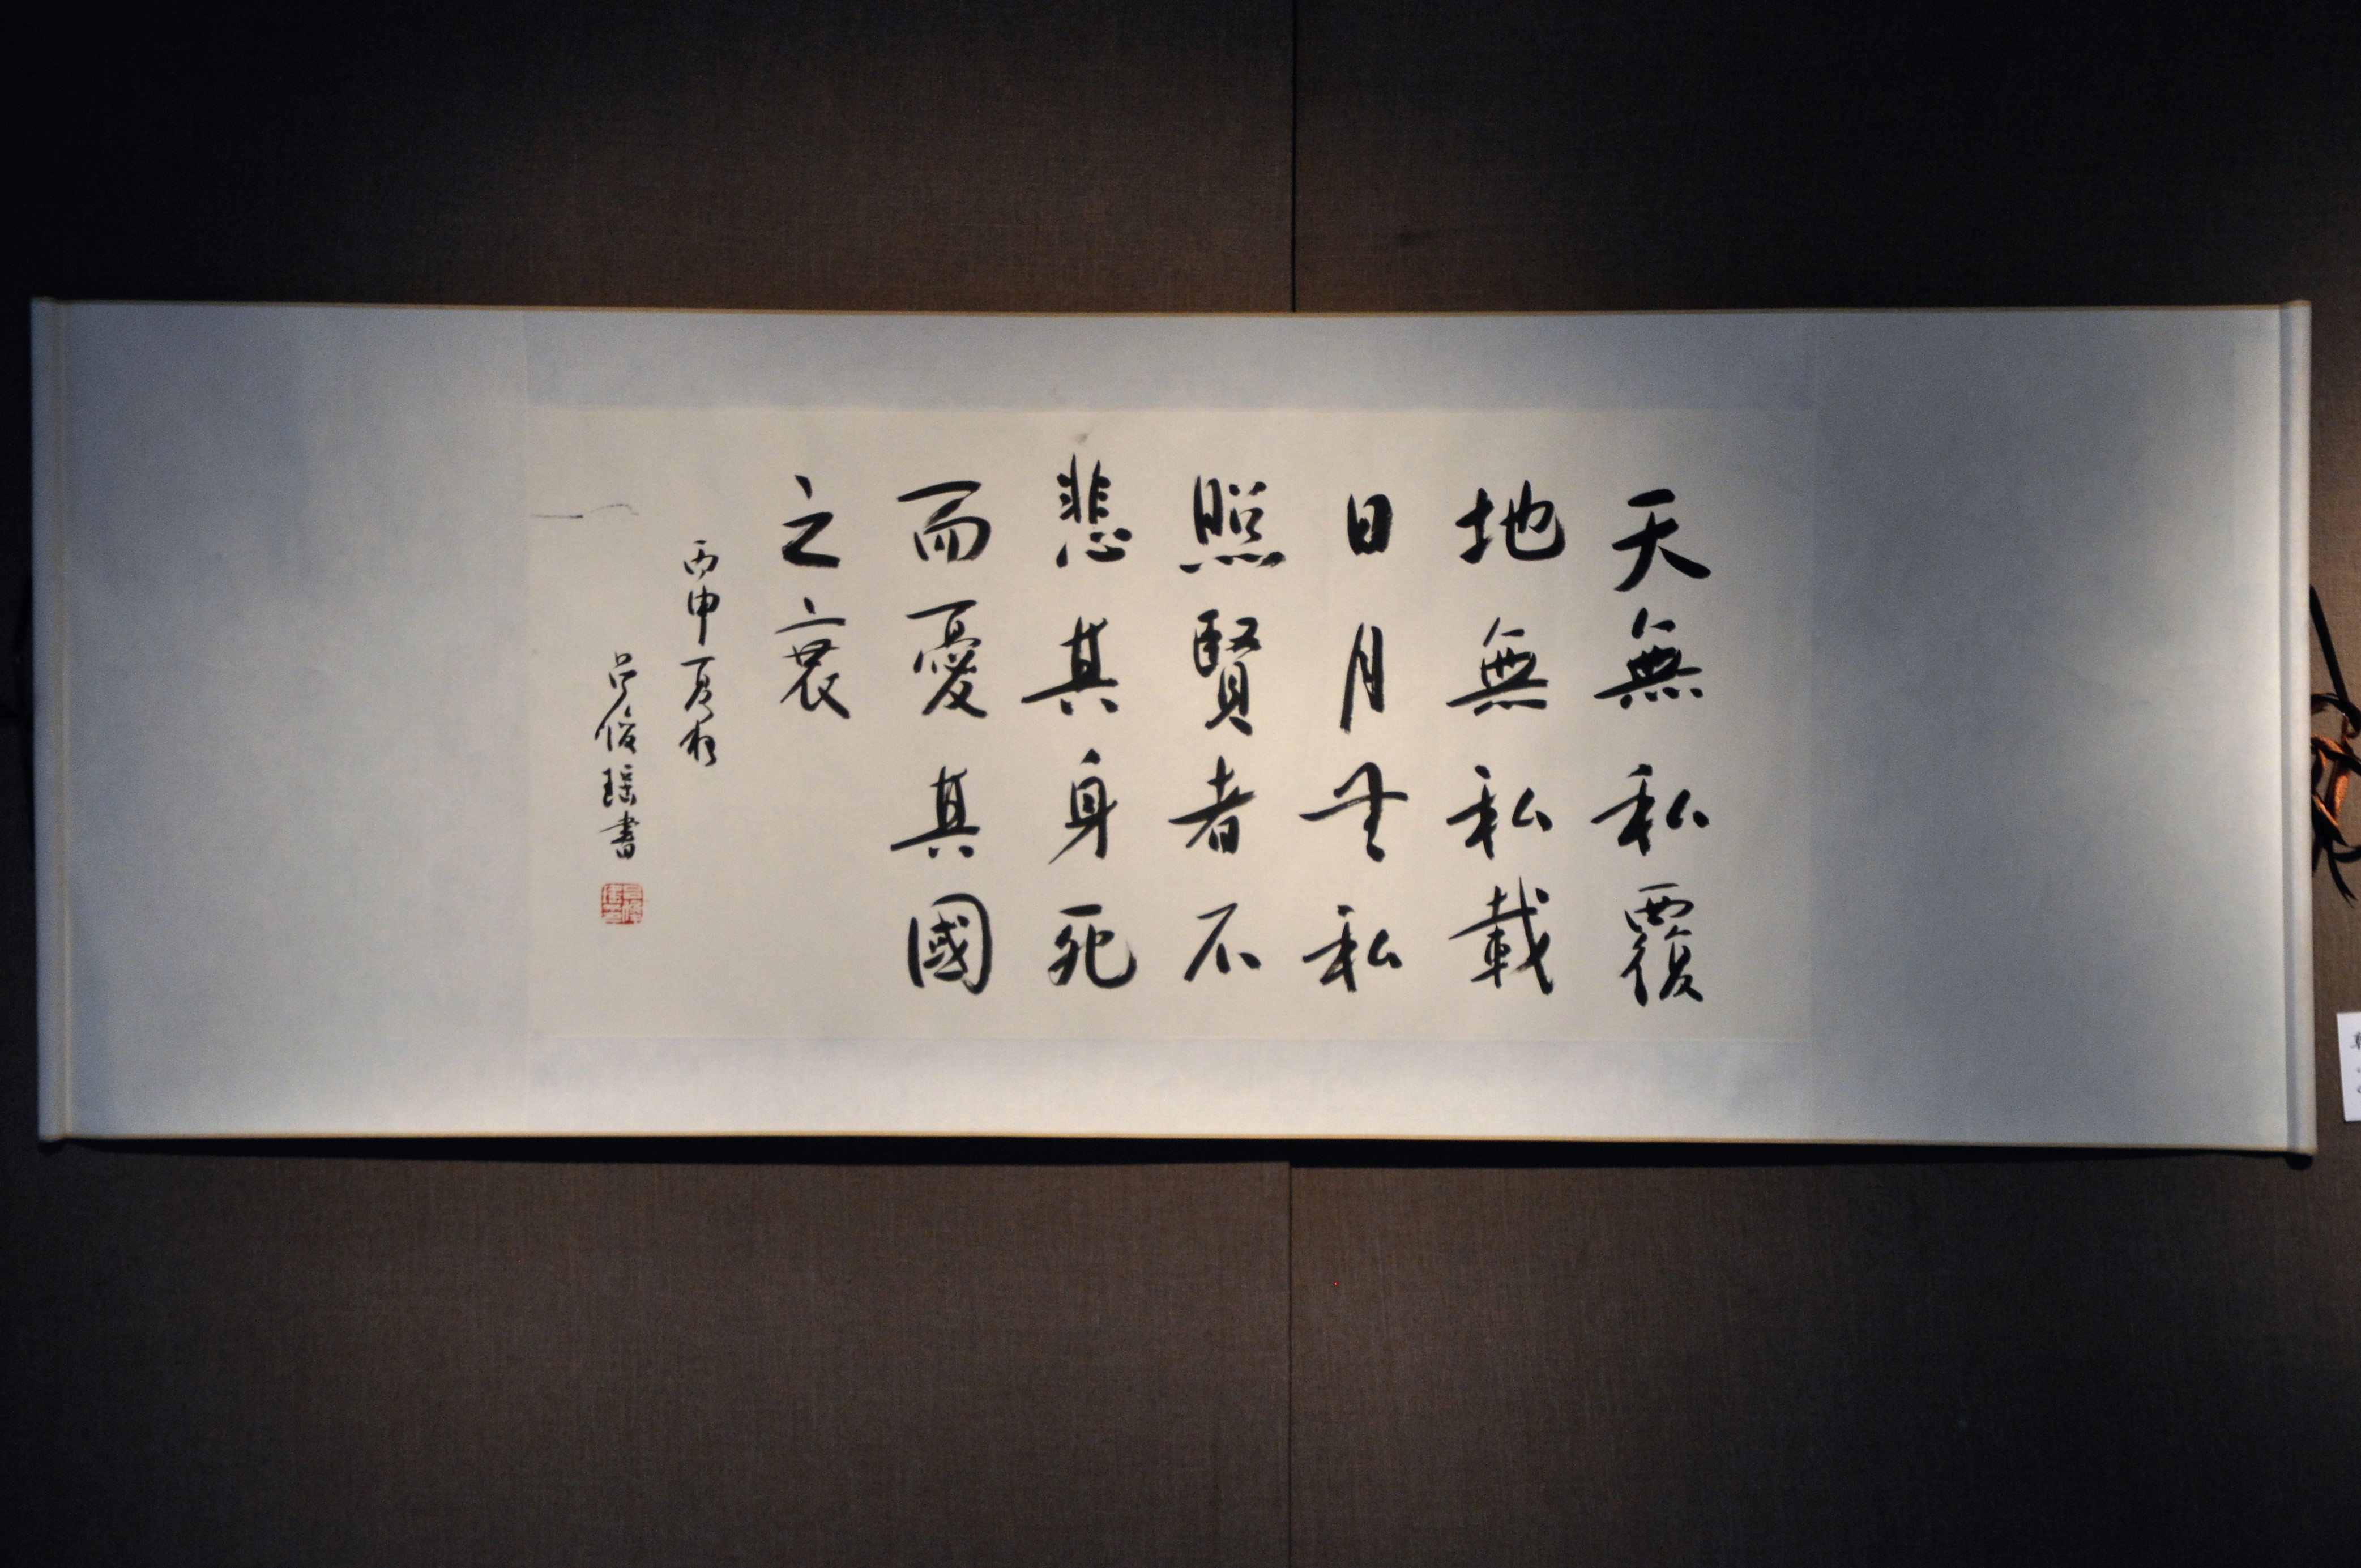 天無私覆
地無私載
日月無私
照賢者不
悲其身死
而憂其國
之衰
丙申夏於
吕俊瑶書